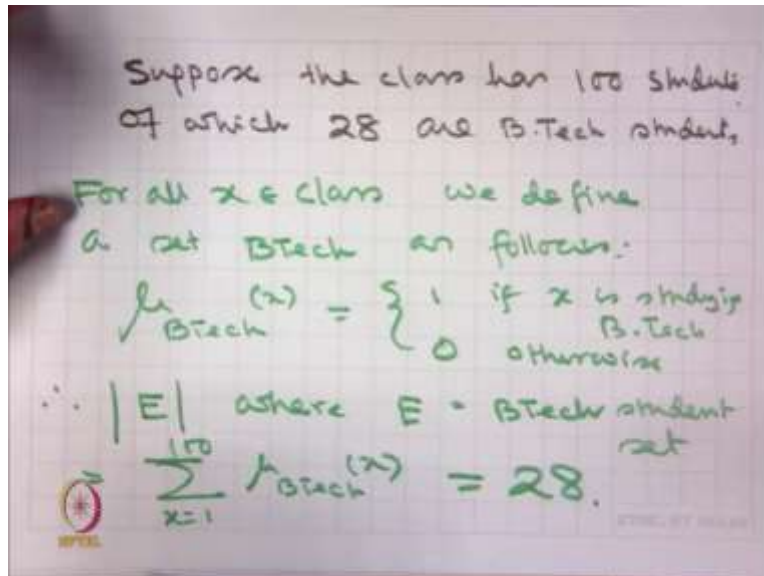 Suppose the class has 100 students
of which 28 are B.Tech student,
For all x ∈ class we define
a set BTech as follows:
μ_BTech(x) = { 1 if x is studying B.Tech
0 otherwise
∴ |E| where E = BTech student set
= Σ_{x=1}^{100} μ_BTech(x) = 28.
NPTEL